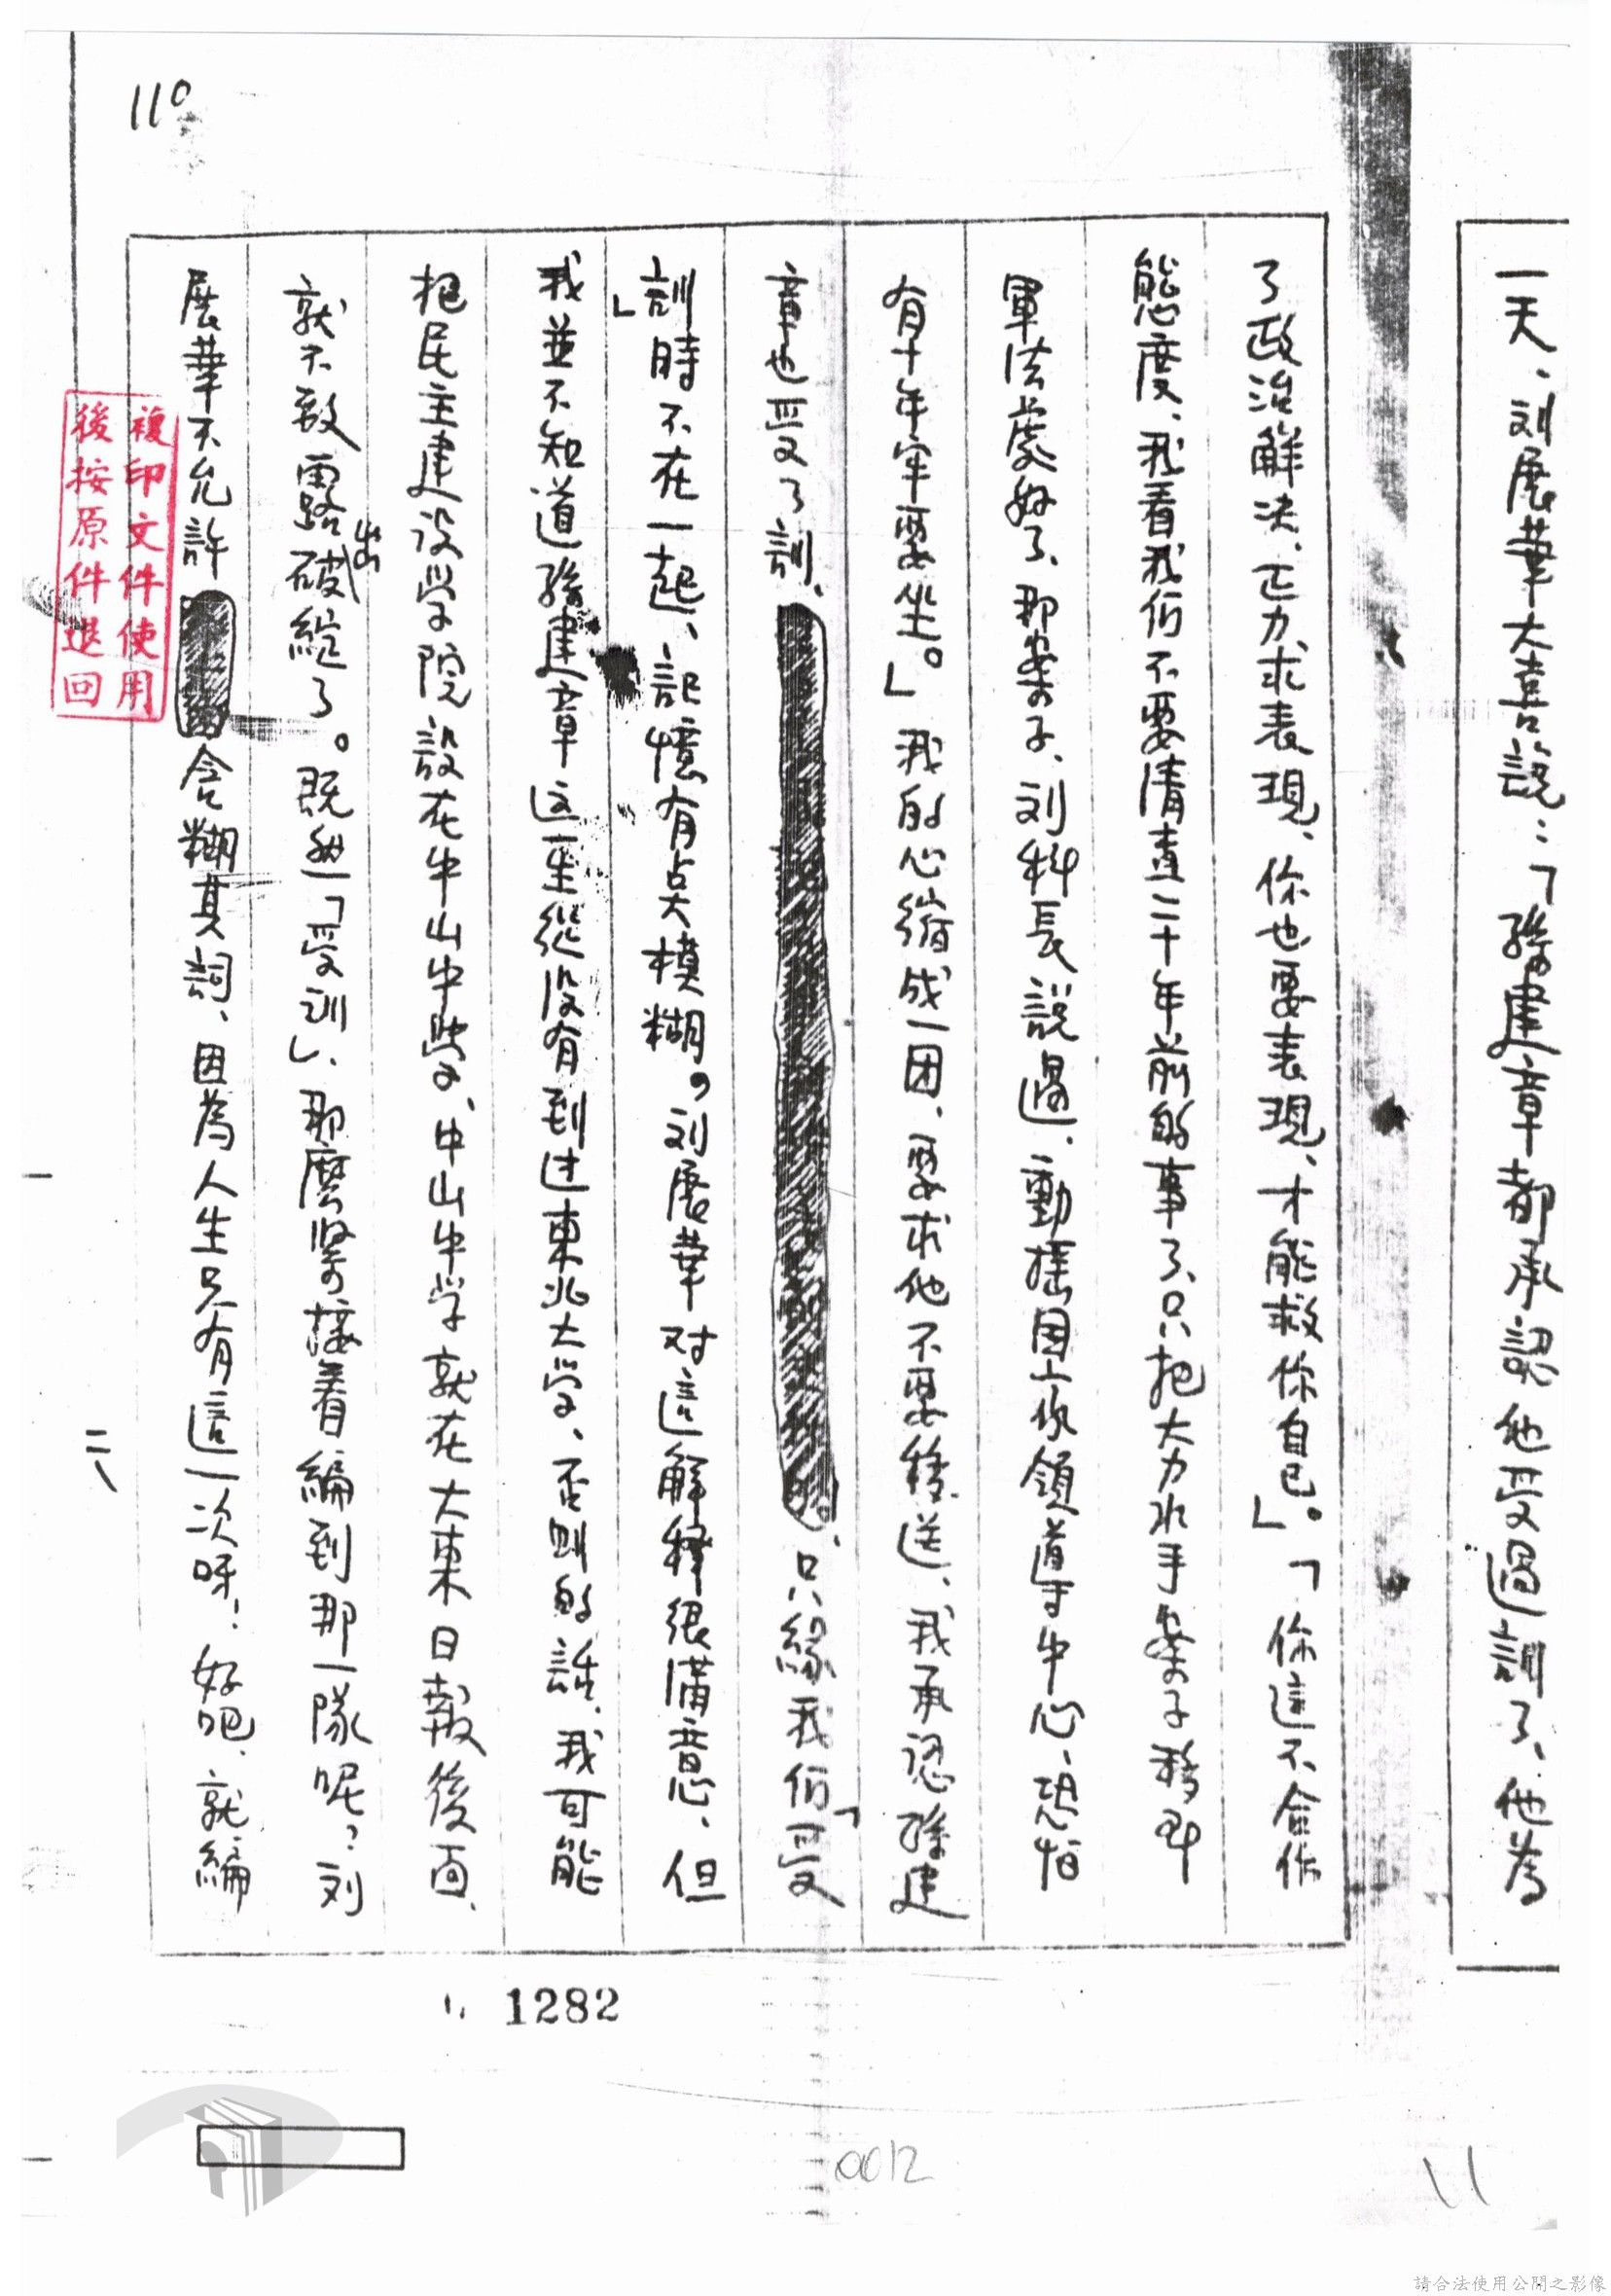 一天、刘展華大喜說：「孫建章都承認他受過訓了、他為
了政治解决、正力求表現、你也要表現、才能救你自己」。「你這不合作
態度、我看我们不要清查二十年前的事了、只把大力水手案子移
軍法處好了、那案子、刘科長說過、動摇国家領導中心、恐怕
有十年牢要坐。」我的心縮成一团、要求他不要移送、我承認孫建
章也受了訓、只緣我们「受
訓」時不在一起、記憶有点模糊。刘展華对這解释很滿意、但
我並不知道孫建章这一生從没有到过東北大学、否則的話、我可能
把民主建设学院設在中山中學、中山中学就在大東日報後面、
就不致露出破綻了。既然「受训」、那麼緊接着編到那一隊呢？刘
展華不允許含糊其詞、因為人生只有這一次呀！好吧、就編
110
複印文件使用
後按原件退回
二八
1282
0012
11
請合法使用公開之影像